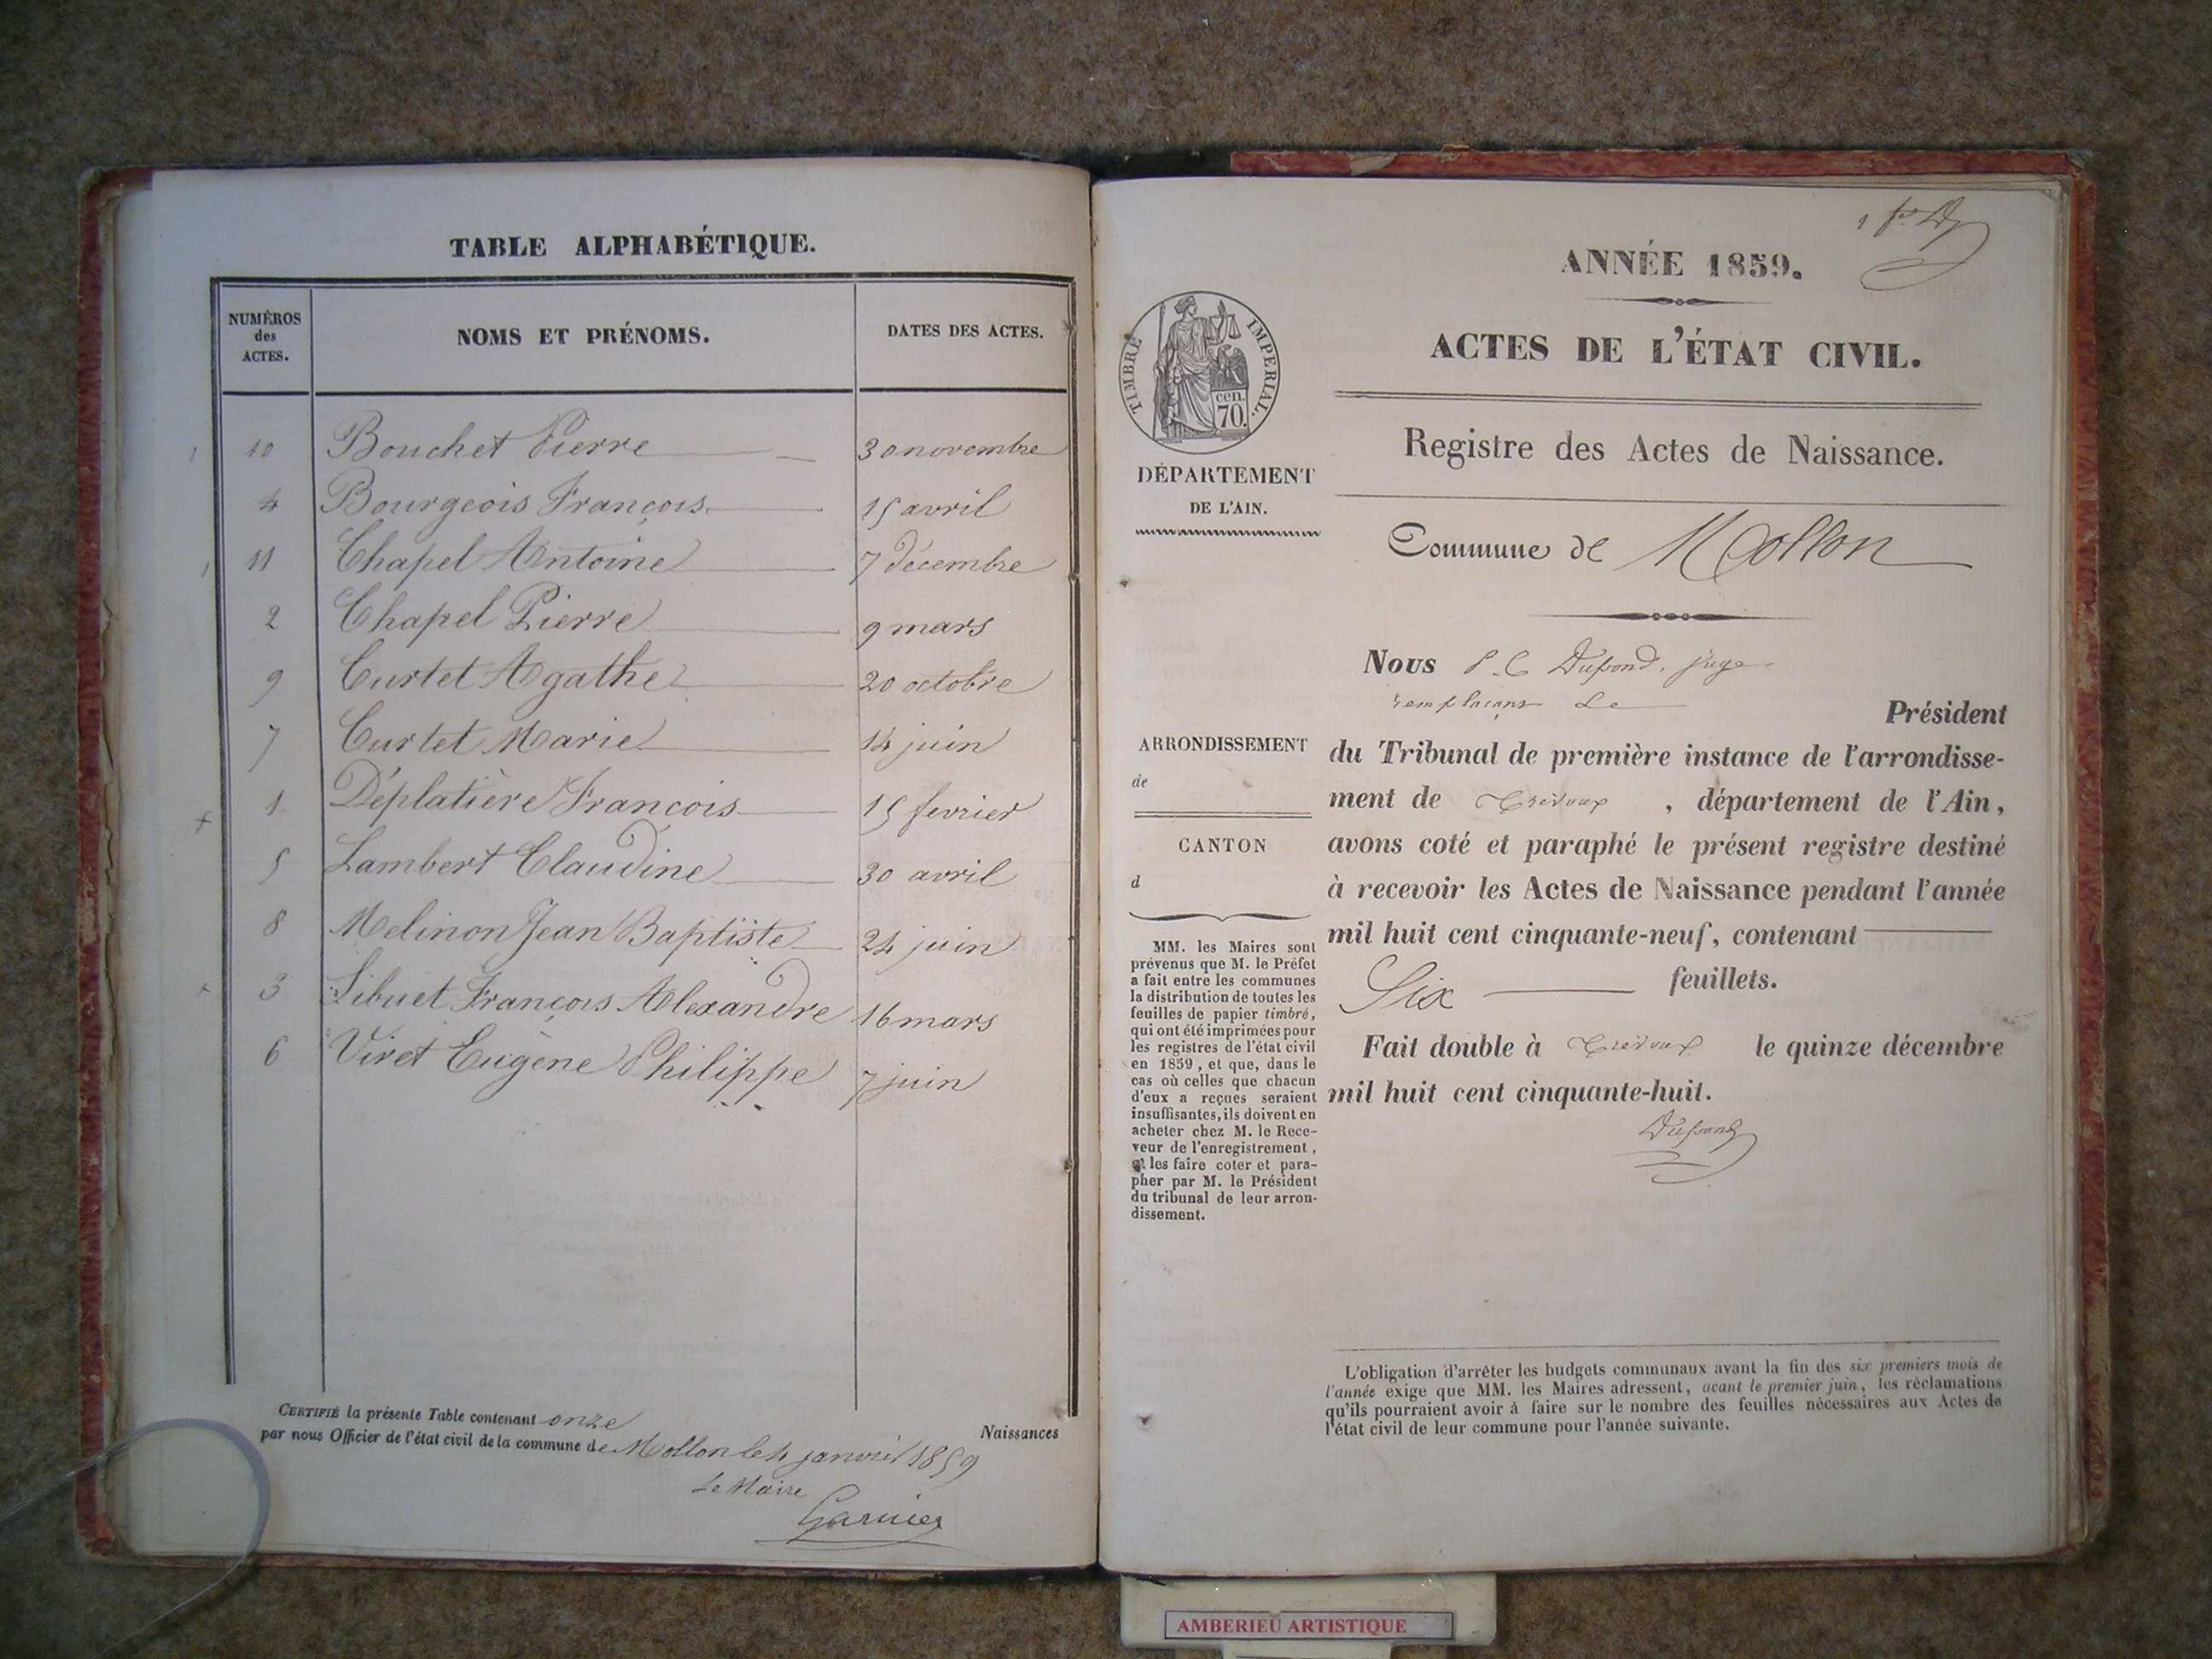 TABLE ALPHABÉTIQUE.
NUMÉROS
des
ACTES.
NOMS ET PRÉNOMS.
DATES DES ACTES.
10 Bouchet Pierre 30 novembre
4 Bourgeois François 15 avril
11 Chapel Antoine 7 décembre
2 Chapel Pierre 9 mars
9 Curtet Agathe 20 octobre
7 Curtet Marie 14 juin
1 Déplatière François 15 fevrier
5 Lambert Claudine 30 avril
8 Melinon Jean Baptiste 24 juin
3 Sibuet François Alexandre 16 mars
6 Viret Eugène Philippe 7 juin
CERTIFIÉ la présente Table contenant onze Naissances
par nous Officier de l'état civil de la commune de Mollon le 4 janvier 1859
Le Maire
Garnier
ANNÉE 1859.
TIMBRE IMPERIAL.
cen.
70.
ACTES DE L'ÉTAT CIVIL.
Registre des Actes de Naissance.
DÉPARTEMENT
DE L'AIN.
Commune de Mollon
Nous P. C Dupond, juge
remplaçant Le
Président
du Tribunal de première instance de l'arrondisse-
ment de Trévoux, département de l'Ain,
avons coté et paraphé le présent registre destiné
à recevoir les Actes de Naissance pendant l'année
mil huit cent cinquante-neuf, contenant
Six feuillets.
Fait double à Trévoux le quinze décembre
mil huit cent cinquante-huit.
Dupond
ARRONDISSEMENT
de
CANTON
d
MM. les Maires sont
prévenus que M. le Préfet
a fait entre les communes
la distribution de toutes les
feuilles de papier timbré,
qui ont été imprimées pour
les registres de l'état civil
en 1859, et que, dans le
cas où celles que chacun
d'eux a reçues seraient
insuffisantes, ils doivent en
acheter chez M. le Rece-
veur de l'enregistrement,
et les faire coter et para-
pher par M. le Président
du tribunal de leur arron-
dissement.
L'obligation d'arrêter les budgets communaux avant la fin des six premiers mois de
l'année exige que MM. les Maires adressent, avant le premier juin, les réclamations
qu'ils pourraient avoir à faire sur le nombre des feuilles nécessaires aux Actes de
l'état civil de leur commune pour l'année suivante.
AMBERIEU ARTISTIQUE